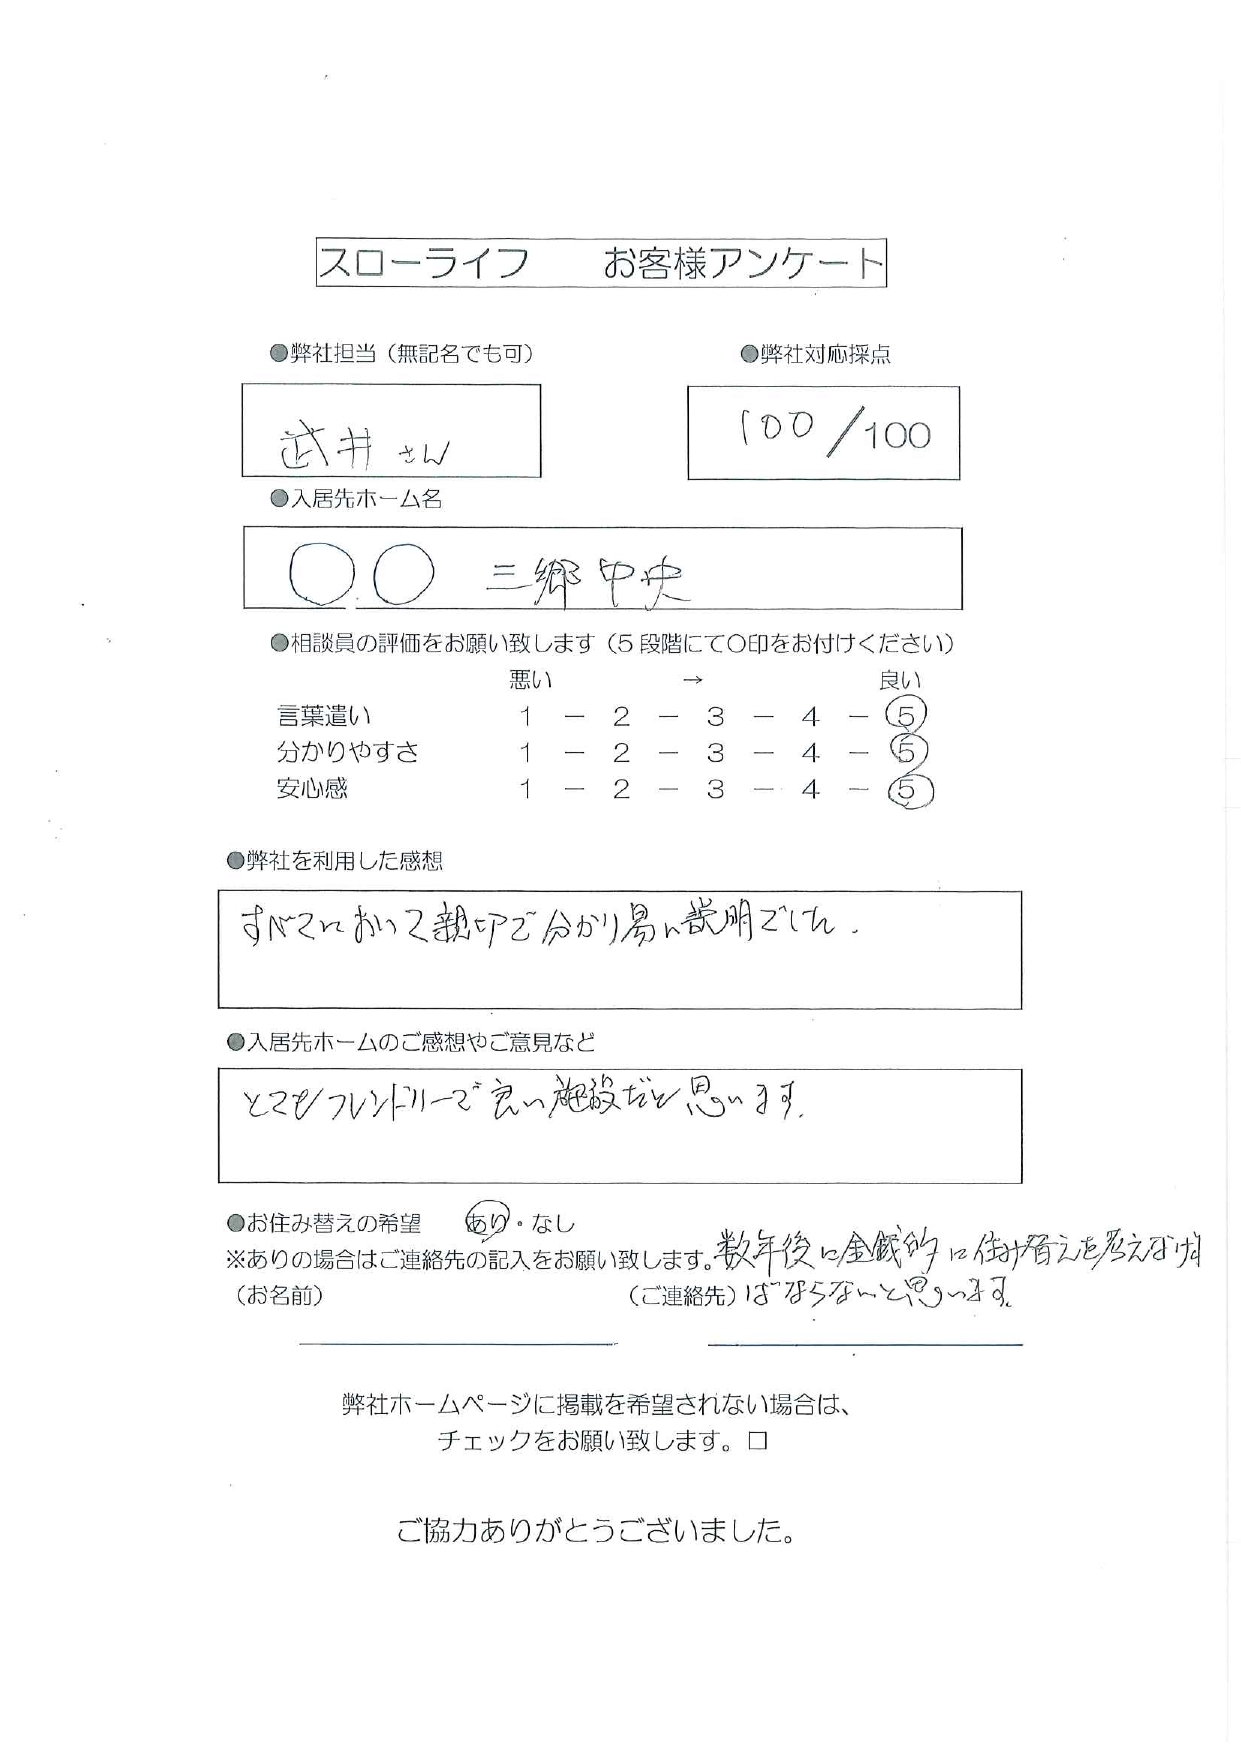 スローライフ　お客様アンケート
●弊社担当（無記名でも可）　●弊社対応採点
武井さん　100／100
●入居先ホーム名
〇〇　三郷中央
●相談員の評価をお願い致します（5段階にて〇印をお付けください）
悪い　→　良い
言葉遣い　1 － 2 － 3 － 4 － 5
分かりやすさ　1 － 2 － 3 － 4 － 5
安心感　1 － 2 － 3 － 4 － 5
●弊社を利用した感想
すべてにおいて親切で分かり易い説明でした.
●入居先ホームのご感想やご意見など
とてもフレンドリーで良い施設だと思います.
●お住み替えの希望　あり・なし
※ありの場合はご連絡先の記入をお願い致します。数年後に金銭的に住み替えを考えなけれ
（お名前）　（ご連絡先）ばならないと思います。
弊社ホームページに掲載を希望されない場合は、
チェックをお願い致します。□
ご協力ありがとうございました。